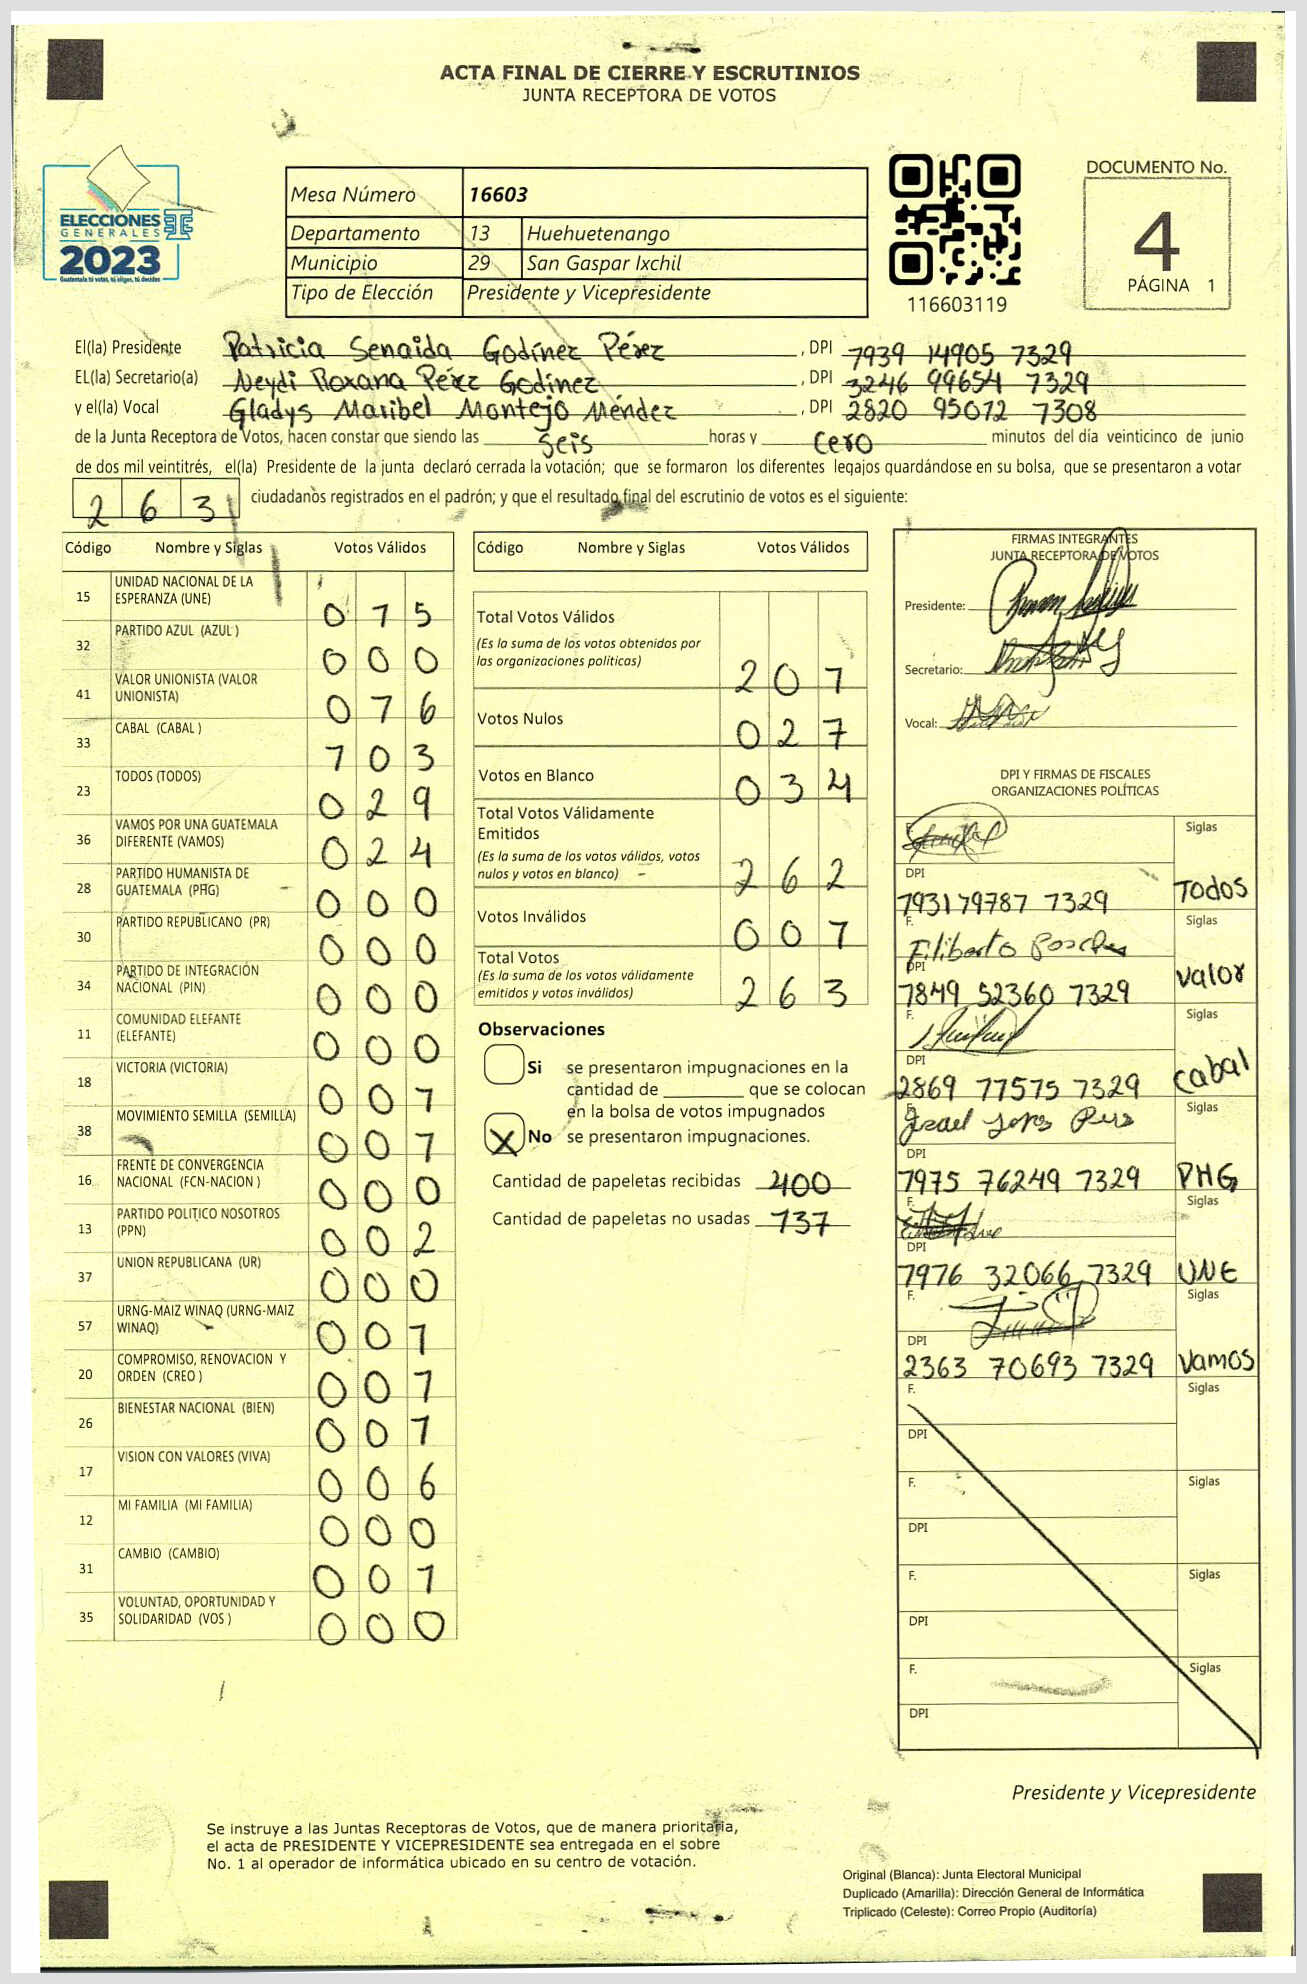 ACTA FINAL DE CIERRE Y ESCRUTINIOS
JUNTA RECEPTORA DE VOTOS
ELECCIONES
GENERALES
2023
Guatemala tú votas, tú eliges, tú decides
Mesa Número 16603
Departamento 13 Huehuetenango
Municipio 29 San Gaspar Ixchil
Tipo de Elección Presidente y Vicepresidente
116603119
DOCUMENTO No.
4
PÁGINA 1
El(la) Presidente Patricia Senaida Godínez Pérez , DPI 1939 14905 1329
EL(la) Secretario(a) Neydi Roxana Pérez Godínez , DPI 3246 99654 1329
y el(la) Vocal Gladys Maribel Montejo Méndez , DPI 2820 95012 1308
de la Junta Receptora de Votos, hacen constar que siendo las seis horas y cero minutos del día veinticinco de junio
de dos mil veintitrés, el(la) Presidente de la junta declaró cerrada la votación; que se formaron los diferentes legajos guardándose en su bolsa, que se presentaron a votar
263 ciudadanos registrados en el padrón; y que el resultado final del escrutinio de votos es el siguiente:
Código Nombre y Siglas Votos Válidos
15 UNIDAD NACIONAL DE LA ESPERANZA (UNE) 015
32 PARTIDO AZUL (AZUL ) 000
41 VALOR UNIONISTA (VALOR UNIONISTA) 016
33 CABAL (CABAL ) 103
23 TODOS (TODOS) 029
36 VAMOS POR UNA GUATEMALA DIFERENTE (VAMOS) 024
28 PARTIDO HUMANISTA DE GUATEMALA (PHG) 000
30 PARTIDO REPUBLICANO (PR) 000
34 PARTIDO DE INTEGRACIÓN NACIONAL (PIN) 000
11 COMUNIDAD ELEFANTE (ELEFANTE) 000
18 VICTORIA (VICTORIA) 001
38 MOVIMIENTO SEMILLA (SEMILLA) 001
16 FRENTE DE CONVERGENCIA NACIONAL (FCN-NACION ) 000
13 PARTIDO POLITICO NOSOTROS (PPN) 002
37 UNION REPUBLICANA (UR) 000
57 URNG-MAIZ WINAQ (URNG-MAIZ WINAQ) 001
20 COMPROMISO, RENOVACION Y ORDEN (CREO ) 001
26 BIENESTAR NACIONAL (BIEN) 001
17 VISION CON VALORES (VIVA) 006
12 MI FAMILIA (MI FAMILIA) 000
31 CAMBIO (CAMBIO) 001
35 VOLUNTAD, OPORTUNIDAD Y SOLIDARIDAD (VOS ) 000
Código Nombre y Siglas Votos Válidos
Total Votos Válidos
(Es la suma de los votos obtenidos por
las organizaciones políticas) 201
Votos Nulos 027
Votos en Blanco 034
Total Votos Válidamente
Emitidos
(Es la suma de los votos válidos, votos
nulos y votos en blanco) 262
Votos Inválidos 001
Total Votos
(Es la suma de los votos válidamente
emitidos y votos inválidos) 263
Observaciones
Si se presentaron impugnaciones en la
cantidad de ________ que se colocan
en la bolsa de votos impugnados
X No se presentaron impugnaciones.
Cantidad de papeletas recibidas 400
Cantidad de papeletas no usadas 137
FIRMAS INTEGRANTES
JUNTA RECEPTORA DE VOTOS
Presidente:
Secretario:
Vocal:
DPI Y FIRMAS DE FISCALES
ORGANIZACIONES POLÍTICAS
F. Siglas
DPI
1931 79787 1329 Todos
F. Filiberto Siglas
DPI
1849 52360 1329 Valor
F. Siglas
DPI
2869 77575 1329 Cabal
F. Siglas
DPI
1975 76249 1329 PHG
F. Siglas
DPI
1976 32066 1329 UNE
F. Siglas
DPI
2363 70693 1329 Vamos
F. Siglas
DPI
F. Siglas
DPI
F. Siglas
DPI
F. Siglas
DPI
Presidente y Vicepresidente
Se instruye a las Juntas Receptoras de Votos, que de manera prioritaria,
el acta de PRESIDENTE Y VICEPRESIDENTE sea entregada en el sobre
No. 1 al operador de informática ubicado en su centro de votación.
Original (Blanca): Junta Electoral Municipal
Duplicado (Amarilla): Dirección General de Informática
Triplicado (Celeste): Correo Propio (Auditoría)